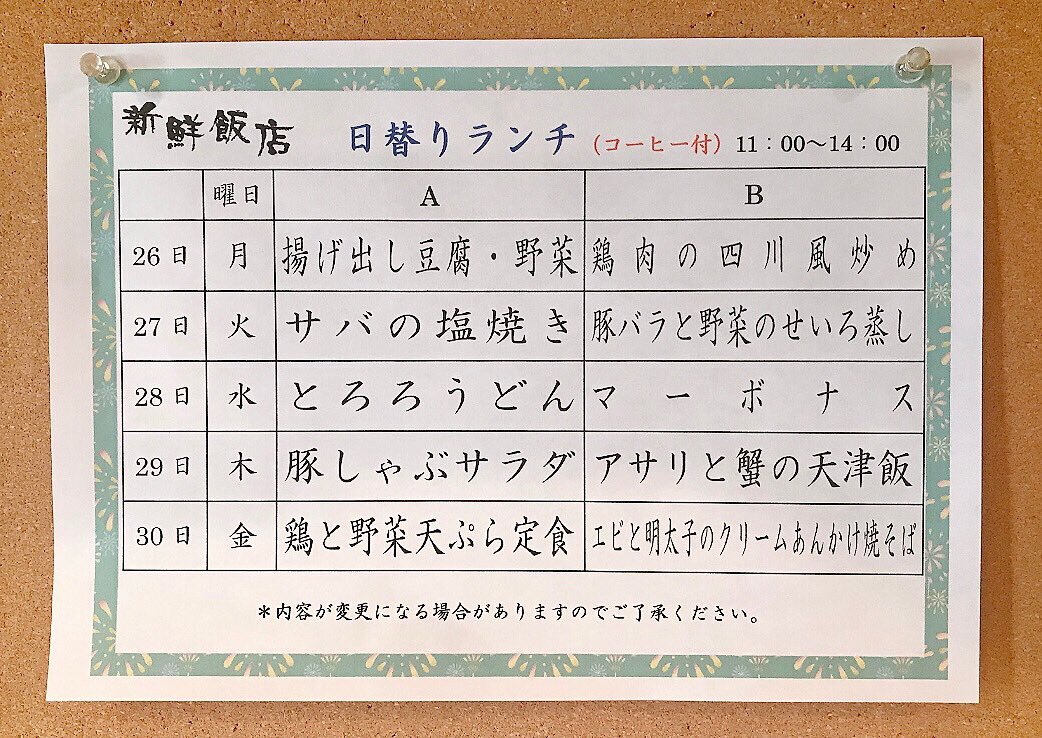 新鮮飯店 日替りランチ (コーヒー付) 11:00～14:00
曜日 A B
26日 月 揚げ出し豆腐・野菜 鶏肉の四川風炒め
27日 火 サバの塩焼き 豚バラと野菜のせいろ蒸し
28日 水 とろろうどん マーボナス
29日 木 豚しゃぶサラダ アサリと蟹の天津飯
30日 金 鶏と野菜天ぷら定食 エビと明太子のクリームあんかけ焼そば
＊内容が変更になる場合がありますのでご了承ください。